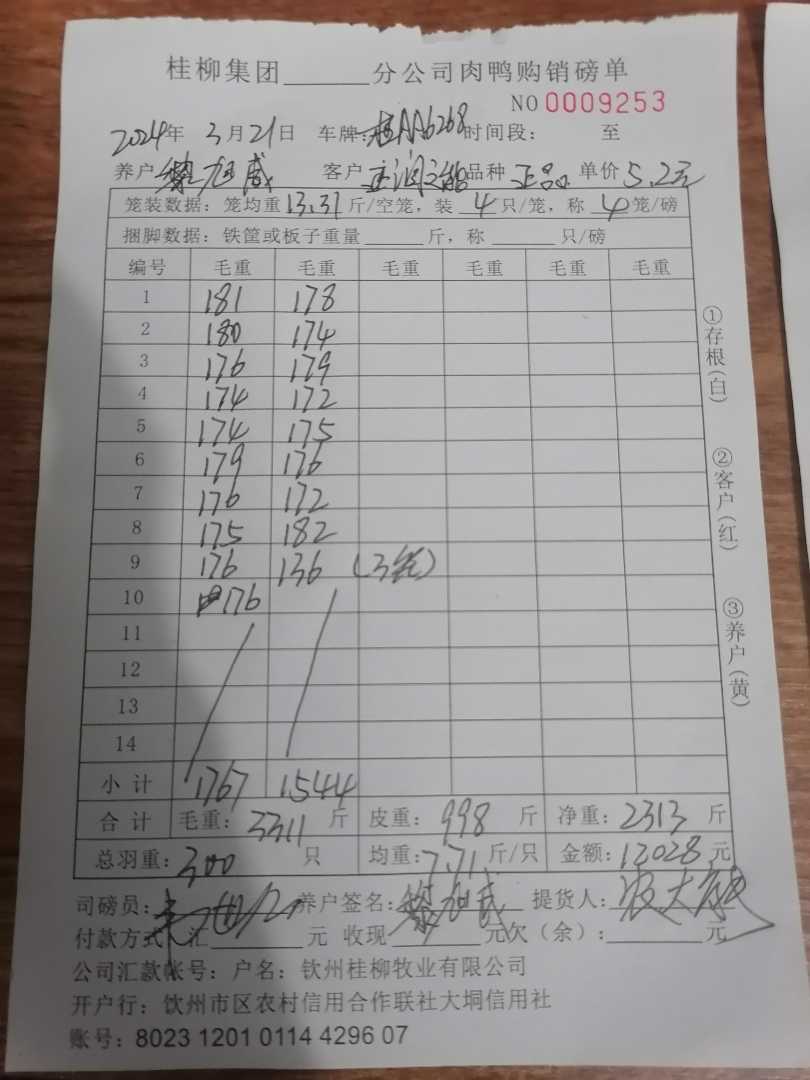 桂柳集团______分公司肉鸭购销磅单
NO 0009253
2024年 3月21日 车牌：桂AA6268 时间段： 至
养户 黎旭威 客户 品种 正品 单价 5.2元
笼装数据：笼均重 13.31 斤/空笼，装 4 只/笼，称 4 笼/磅
捆脚数据：铁筐或板子重量______斤，称______只/磅
编号 毛重 毛重 毛重 毛重 毛重 毛重
1 181 178
2 180 174
3 176 179
4 174 172
5 174 175
6 179 176
7 176 172
8 175 182
9 176 136 (3笼)
10 176
11
12
13
14
小计 1767 1544
合计 毛重：3311 斤 皮重：998 斤 净重：2313 斤
总羽重：300 只 均重：7.71 斤/只 金额：12028 元
司磅员： 养户签名：黎旭威 提货人：
付款方式：汇______元 收现______元欠（余）：______元
公司汇款帐号：户名：钦州桂柳牧业有限公司
开户行：钦州市区农村信用合作联社大垌信用社
账号：8023 1201 0114 4296 07
①存根（白）
②客户（红）
③养户（黄）